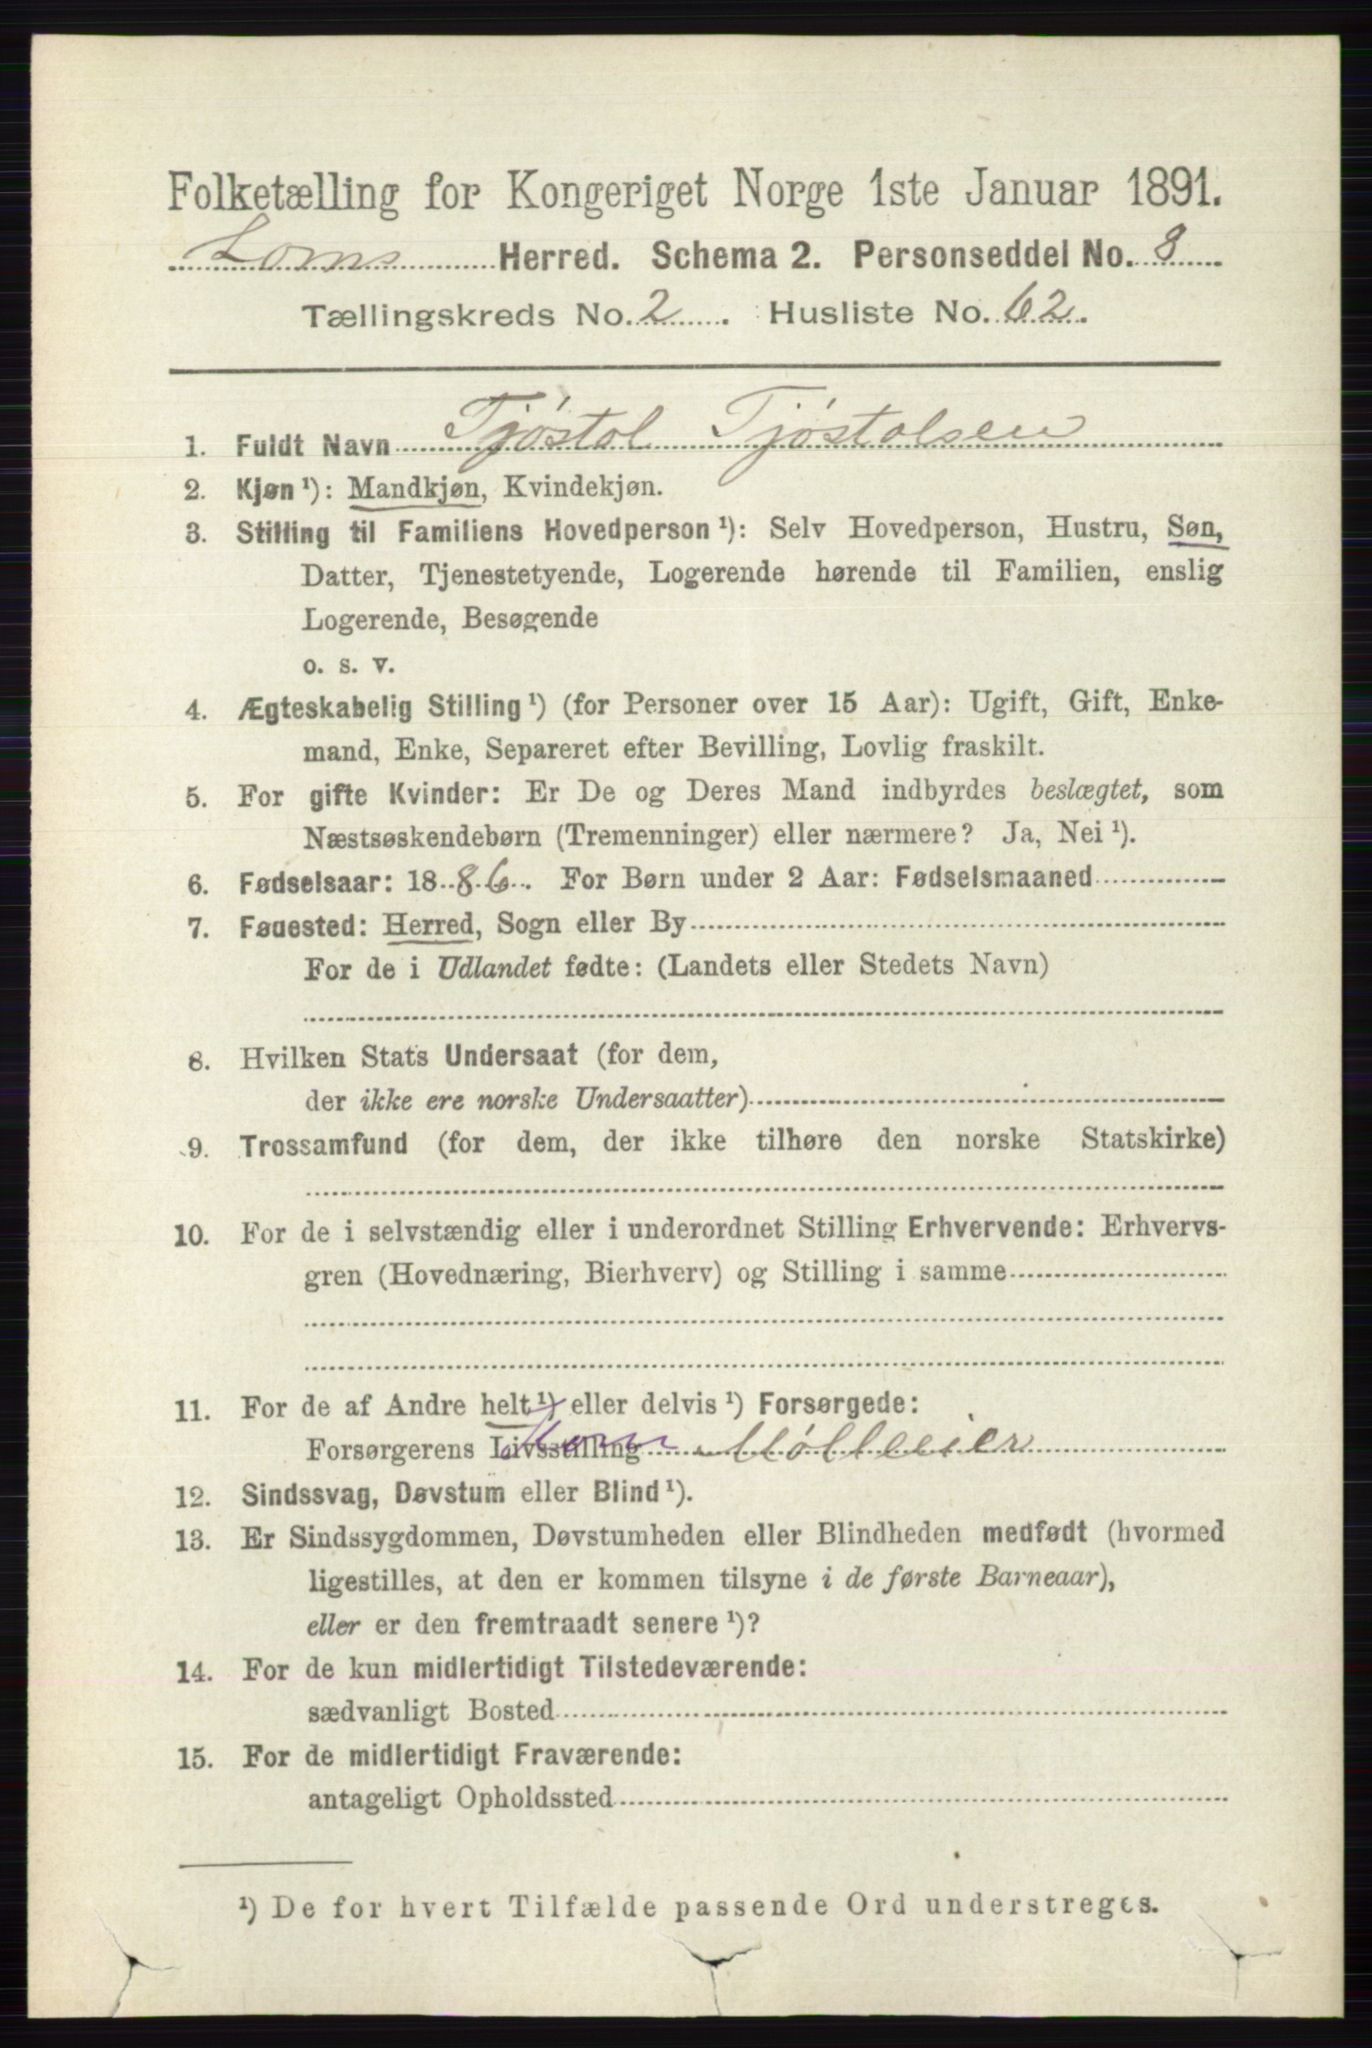 Folketælling for Kongeriget Norge 1ste Januar 1891.
Loms Herred. Schema 2. Personseddel No. 8
Tællingskreds No. 2. Husliste No. 62.
1. Fuldt Navn Tjøstol Tjøstolsen
2. Kjøn ¹): Mandkjøn, Kvindekjøn.
3. Stilling til Familiens Hovedperson ¹): Selv Hovedperson, Hustru, Søn,
Datter, Tjenestetyende, Logerende hørende til Familien, enslig
Logerende, Besøgende
o. s. v.
4. Ægteskabelig Stilling ¹) (for Personer over 15 Aar): Ugift, Gift, Enke-
mand, Enke, Separeret efter Bevilling, Lovlig fraskilt.
5. For gifte Kvinder: Er De og Deres Mand indbyrdes beslægtet, som
Næstsøskendebørn (Tremenninger) eller nærmere? Ja, Nei ¹).
6. Fødselsaar: 1886. For Børn under 2 Aar: Fødselsmaaned
7. Fødested: Herred, Sogn eller By
For de i Udlandet fødte: (Landets eller Stedets Navn)
8. Hvilken Stats Undersaat (for dem,
der ikke ere norske Undersaatter)
9. Trossamfund (for dem, der ikke tilhøre den norske Statskirke)
10. For de i selvstændig eller i underordnet Stilling Erhvervende: Erhvervs-
gren (Hovednæring, Bierhverv) og Stilling i samme
11. For de af Andre helt ¹) eller delvis ¹) Forsørgede:
Forsørgerens Livsstilling Mølleeier
12. Sindssvag, Døvstum eller Blind ¹).
13. Er Sindssygdommen, Døvstumheden eller Blindheden medfødt (hvormed
ligestilles, at den er kommen tilsyne i de første Barneaar),
eller er den fremtraadt senere ¹)?
14. For de kun midlertidigt Tilstedeværende:
sædvanligt Bosted
15. For de midlertidigt Fraværende:
antageligt Opholdssted
¹) De for hvert Tilfælde passende Ord understreges.